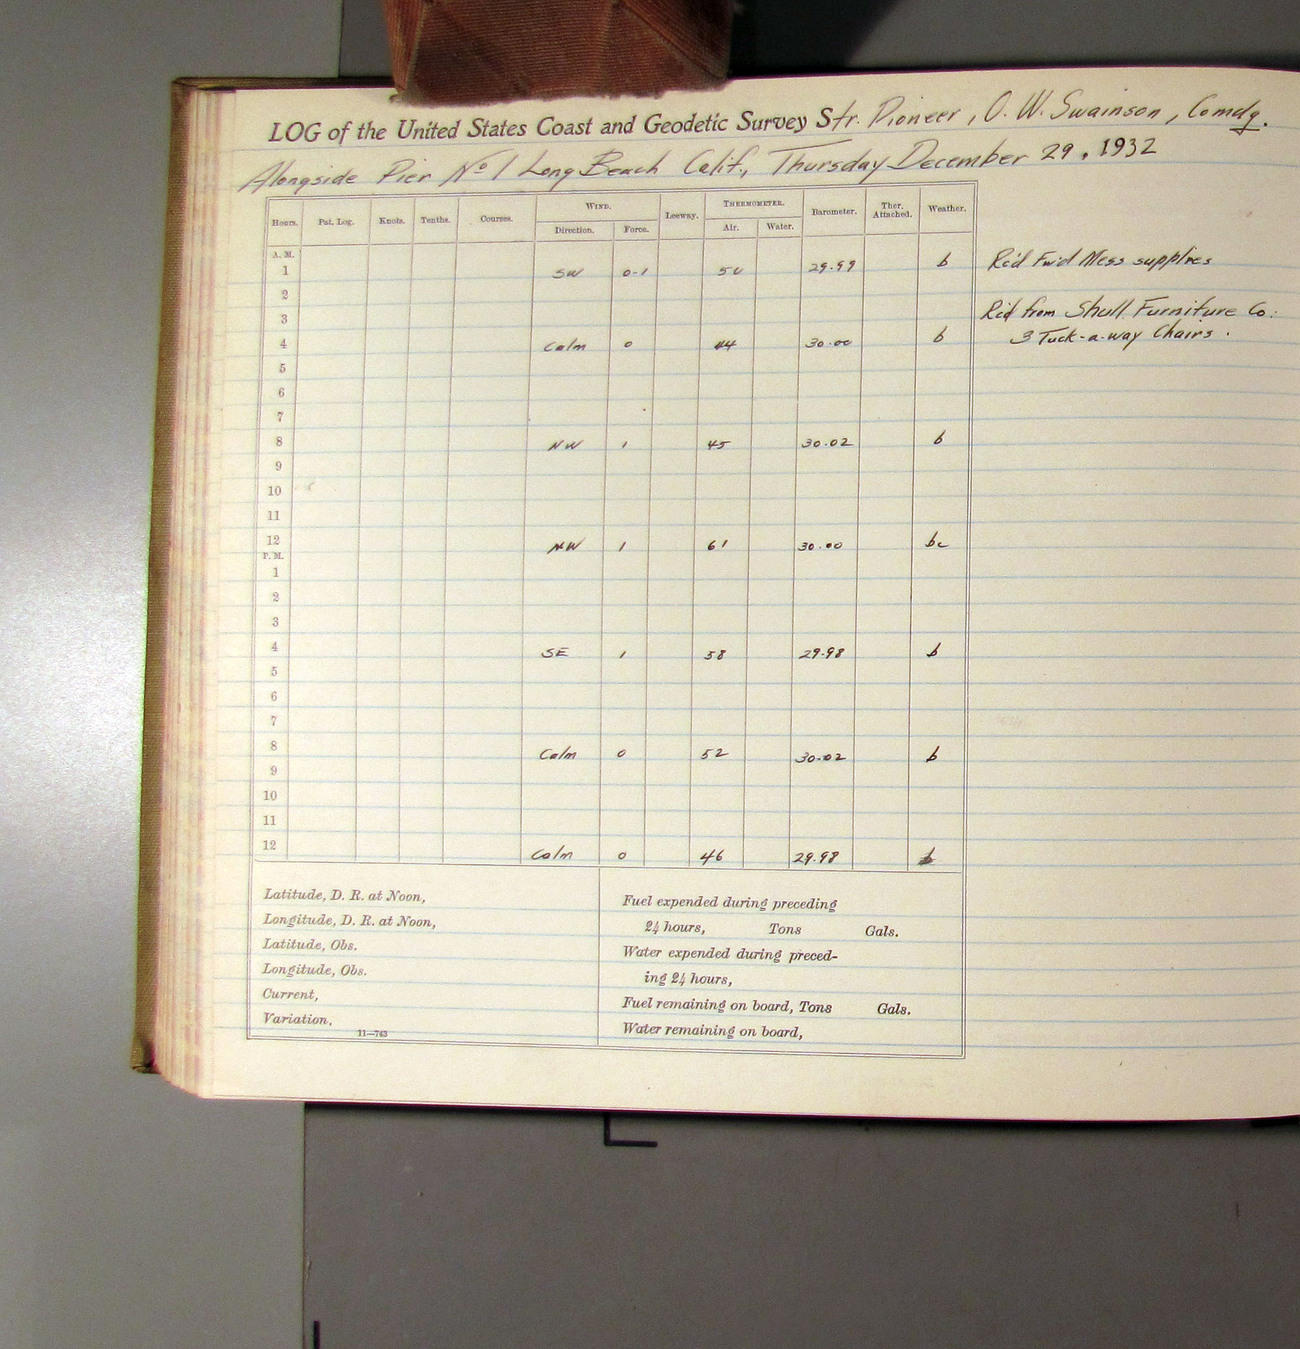 LOG of the United States Coast and Geodetic Survey Str. Pioneer, O. W. Swainson, Comdg.
Alongside Pier No 1 Long Beach Calif., Thursday December 29, 1932
Hours. Pat. Log. Knots. Tenths. Courses. WIND. Leeway. THERMOMETER. Barometer. Ther. Attached. Weather.
Direction. Force. Air. Water.
A. M.
1 SW 0-1 50 29.99 b Rc'd Fw'd Mess supplies
2
3 Rc'd from Shull Furniture Co.:
4 Calm 0 44 30.00 b 3 Tuck-a-way Chairs.
5
6
7
8 NW 1 45 30.02 b
9
10
11
12 NW 1 61 30.00 bc
P. M.
1
2
3
4 SE 1 58 29.98 b
5
6
7
8 Calm 0 52 30.02 b
9
10
11
12 Calm 0 46 29.98 b
Latitude, D. R. at Noon,
Longitude, D. R. at Noon,
Latitude, Obs.
Longitude, Obs.
Current,
Variation,
11—763
Fuel expended during preceding
24 hours, Tons Gals.
Water expended during preced-
ing 24 hours,
Fuel remaining on board, Tons Gals.
Water remaining on board,